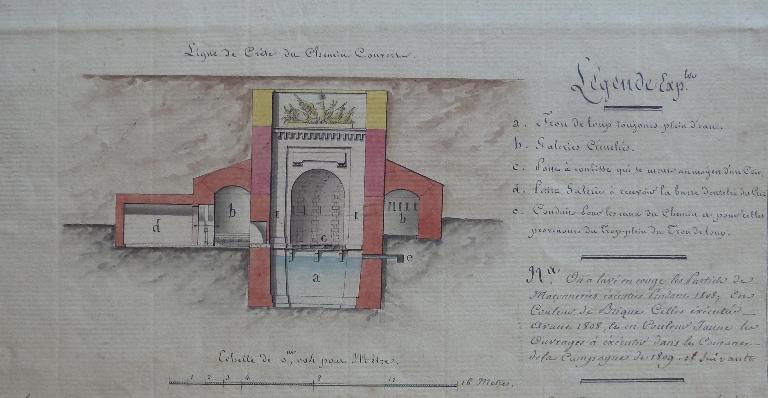 Ligne de Crête du Chemin Couvert.
Légende Exp.te
a. Trou de loup toujours plein d'eau.
b. Galeries Crenelées.
c. Porte à coulisse qui se meut au moyen d'un Cric.
d. Petite Galerie à recevoir la barre dentelée du Cric
e. Conduite pour les eaux du Chemin et pour celles
provenues du trop-plein du Trou de loup.
N.a On a lavé en rouge les Parties de
Maçonneries éxécutées pendant 1808; En
Couleur de Brique Celles éxécutées
avant 1808, & en Couleur Jaune les
Ouvrages à éxécuter dans le
de la Campagne de 1809. et Suivante
d
b
b
c
a
e
Echelle de pour Mètre.
1 2 3 4 8 12 16 Mètres.